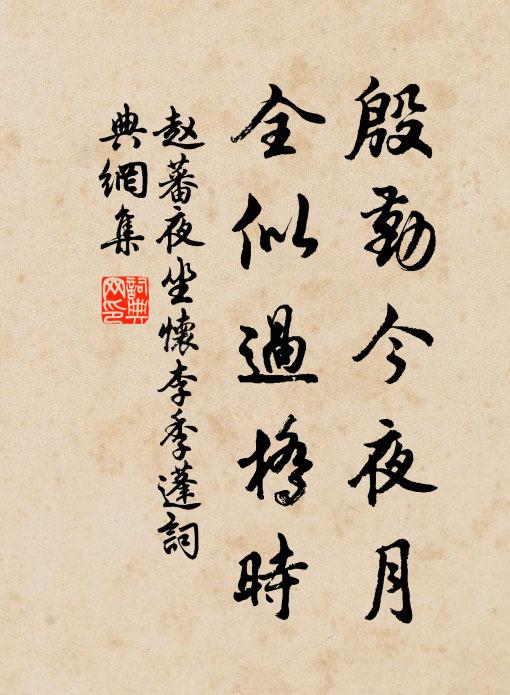 殷勤今夜月
全似過橋時
赵蕃夜坐懷李季蓬詞
典網集
詞典
网印